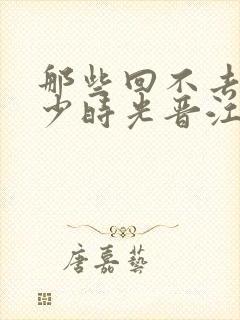 那些回不去
少時光晋江
唐嘉藝